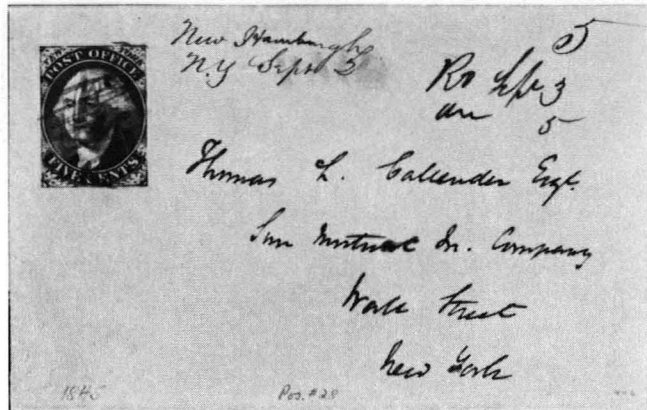 POST OFFICE
FIVE CENTS
New Hamburgh
N.Y Sept 3
5
Rd Sept 3
an 5
Thomas L. Callender Esqr.
Sun Mutual In. Company
Wall Street
New York
1845
Pos. #28